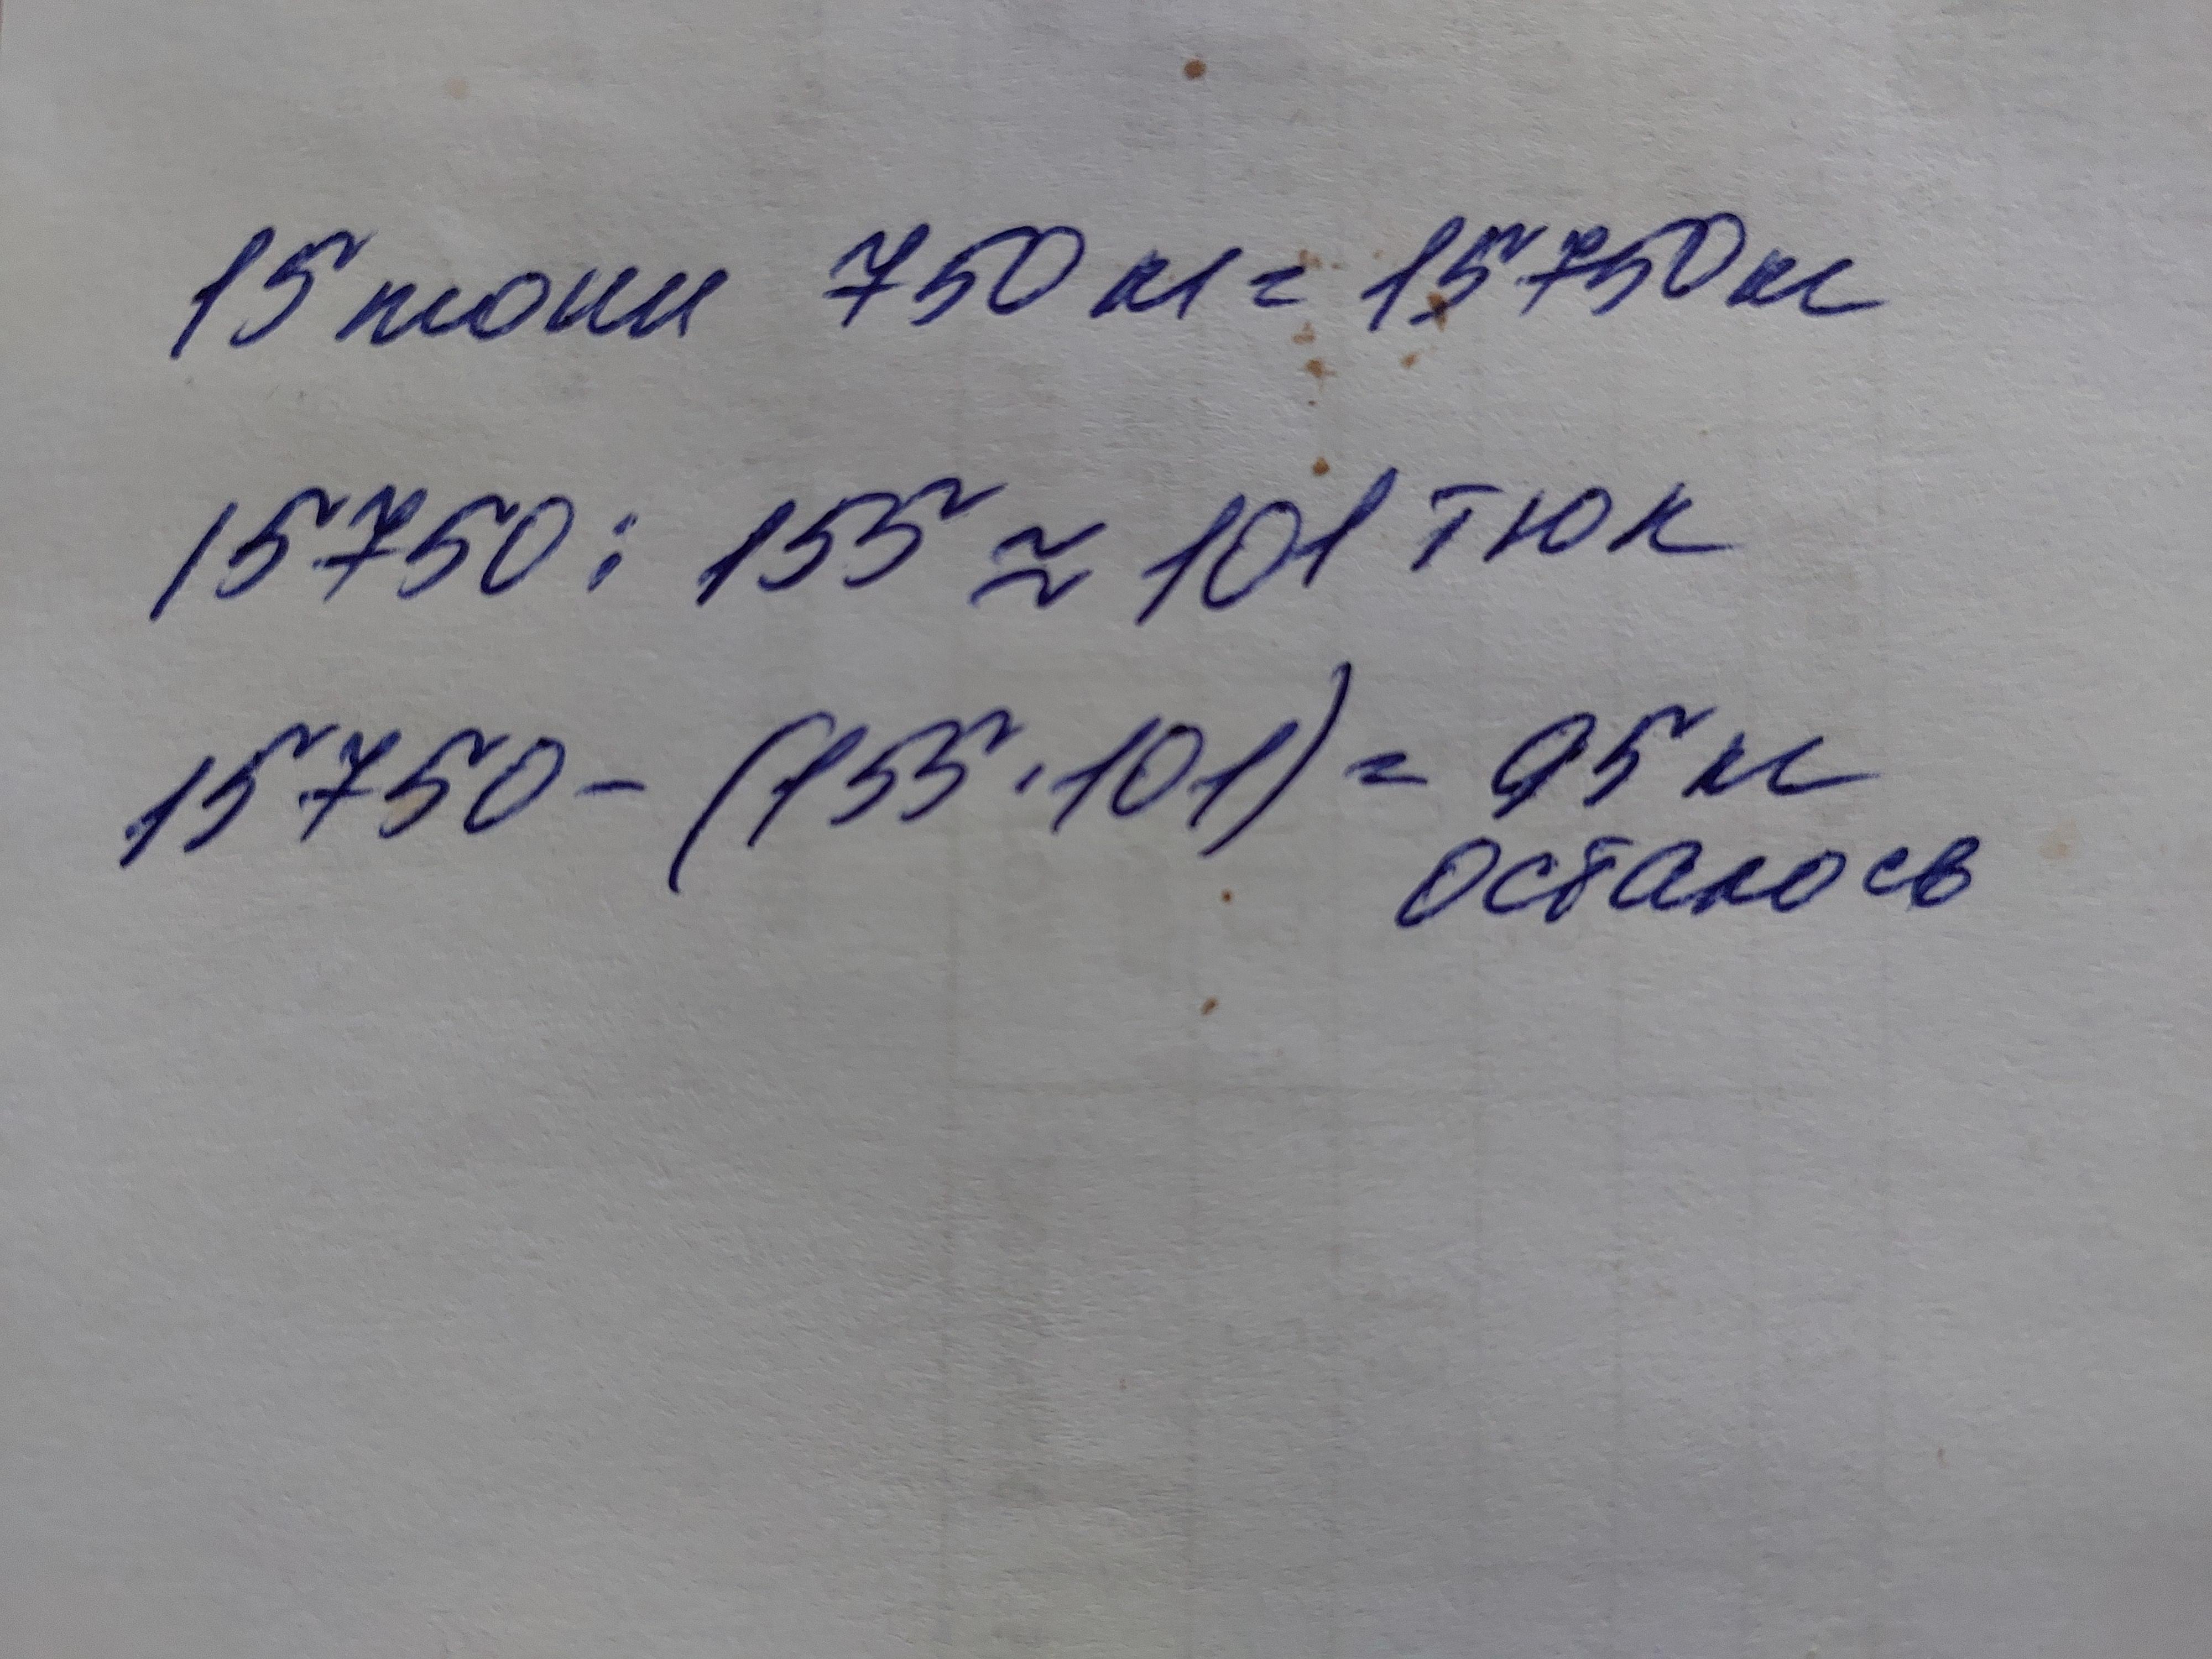 15 тонн 750 кг = 15750 кг
15750 : 155 ≈ 101 тюк
15750 - (155 · 101) = 95 кг
осталось